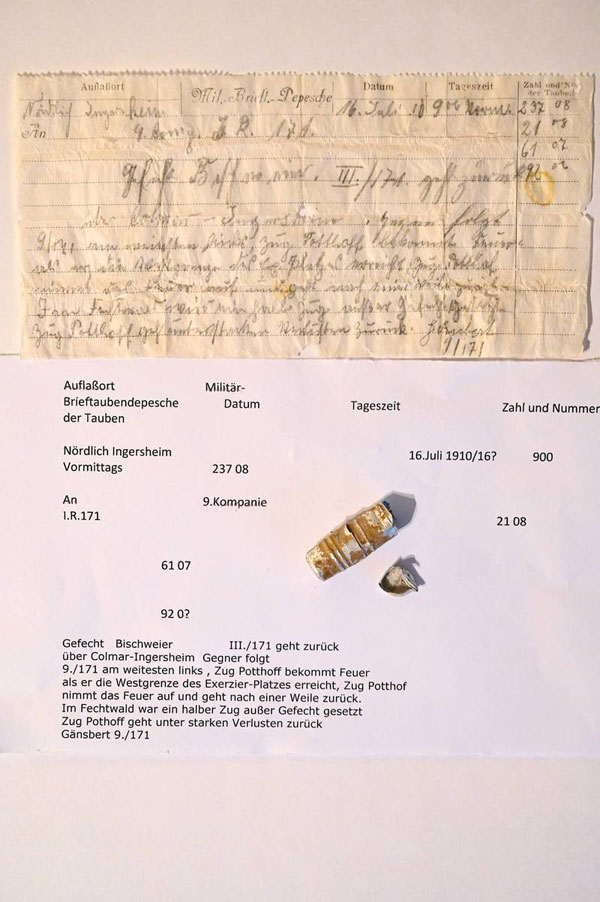 Auflaßort Mil.-Brieft.-Depesche Datum Tageszeit Zahl und No der Tauben
Nördlich Ingersheim 16. Juli 9 00 Vorm. 237 08
An 9. I. R. 171. 21 08
61 07
Gefecht III./171. geht zurück 92
über Colmar – Ingersheim. Gegner folgt
9./171. am weitesten links, Zug Potthoff bekommt Feuer
als er die Westgrenze des Platzes erreicht, Zug Potthof
nimmt das Feuer auf und geht nach einer Weile zurück.
Im war ein halb. Zug außer Gefecht gesetzt
Zug Potthoff geht unter starken Verlusten zurück.
9/171
Auflaßort Militär-
Brieftaubendepesche Datum Tageszeit Zahl und Nummer
der Tauben
Nördlich Ingersheim 16.Juli 1910/16? 900
Vormittags 237 08
An 9.Kompanie
I.R.171 21 08
61 07
92 0?
Gefecht Bischweier III./171 geht zurück
über Colmar-Ingersheim Gegner folgt
9./171 am weitesten links , Zug Potthoff bekommt Feuer
als er die Westgrenze des Exerzier-Platzes erreicht, Zug Potthof
nimmt das Feuer auf und geht nach einer Weile zurück.
Im Fechtwald war ein halber Zug außer Gefecht gesetzt
Zug Pothoff geht unter starken Verlusten zurück
Gänsbert 9./171